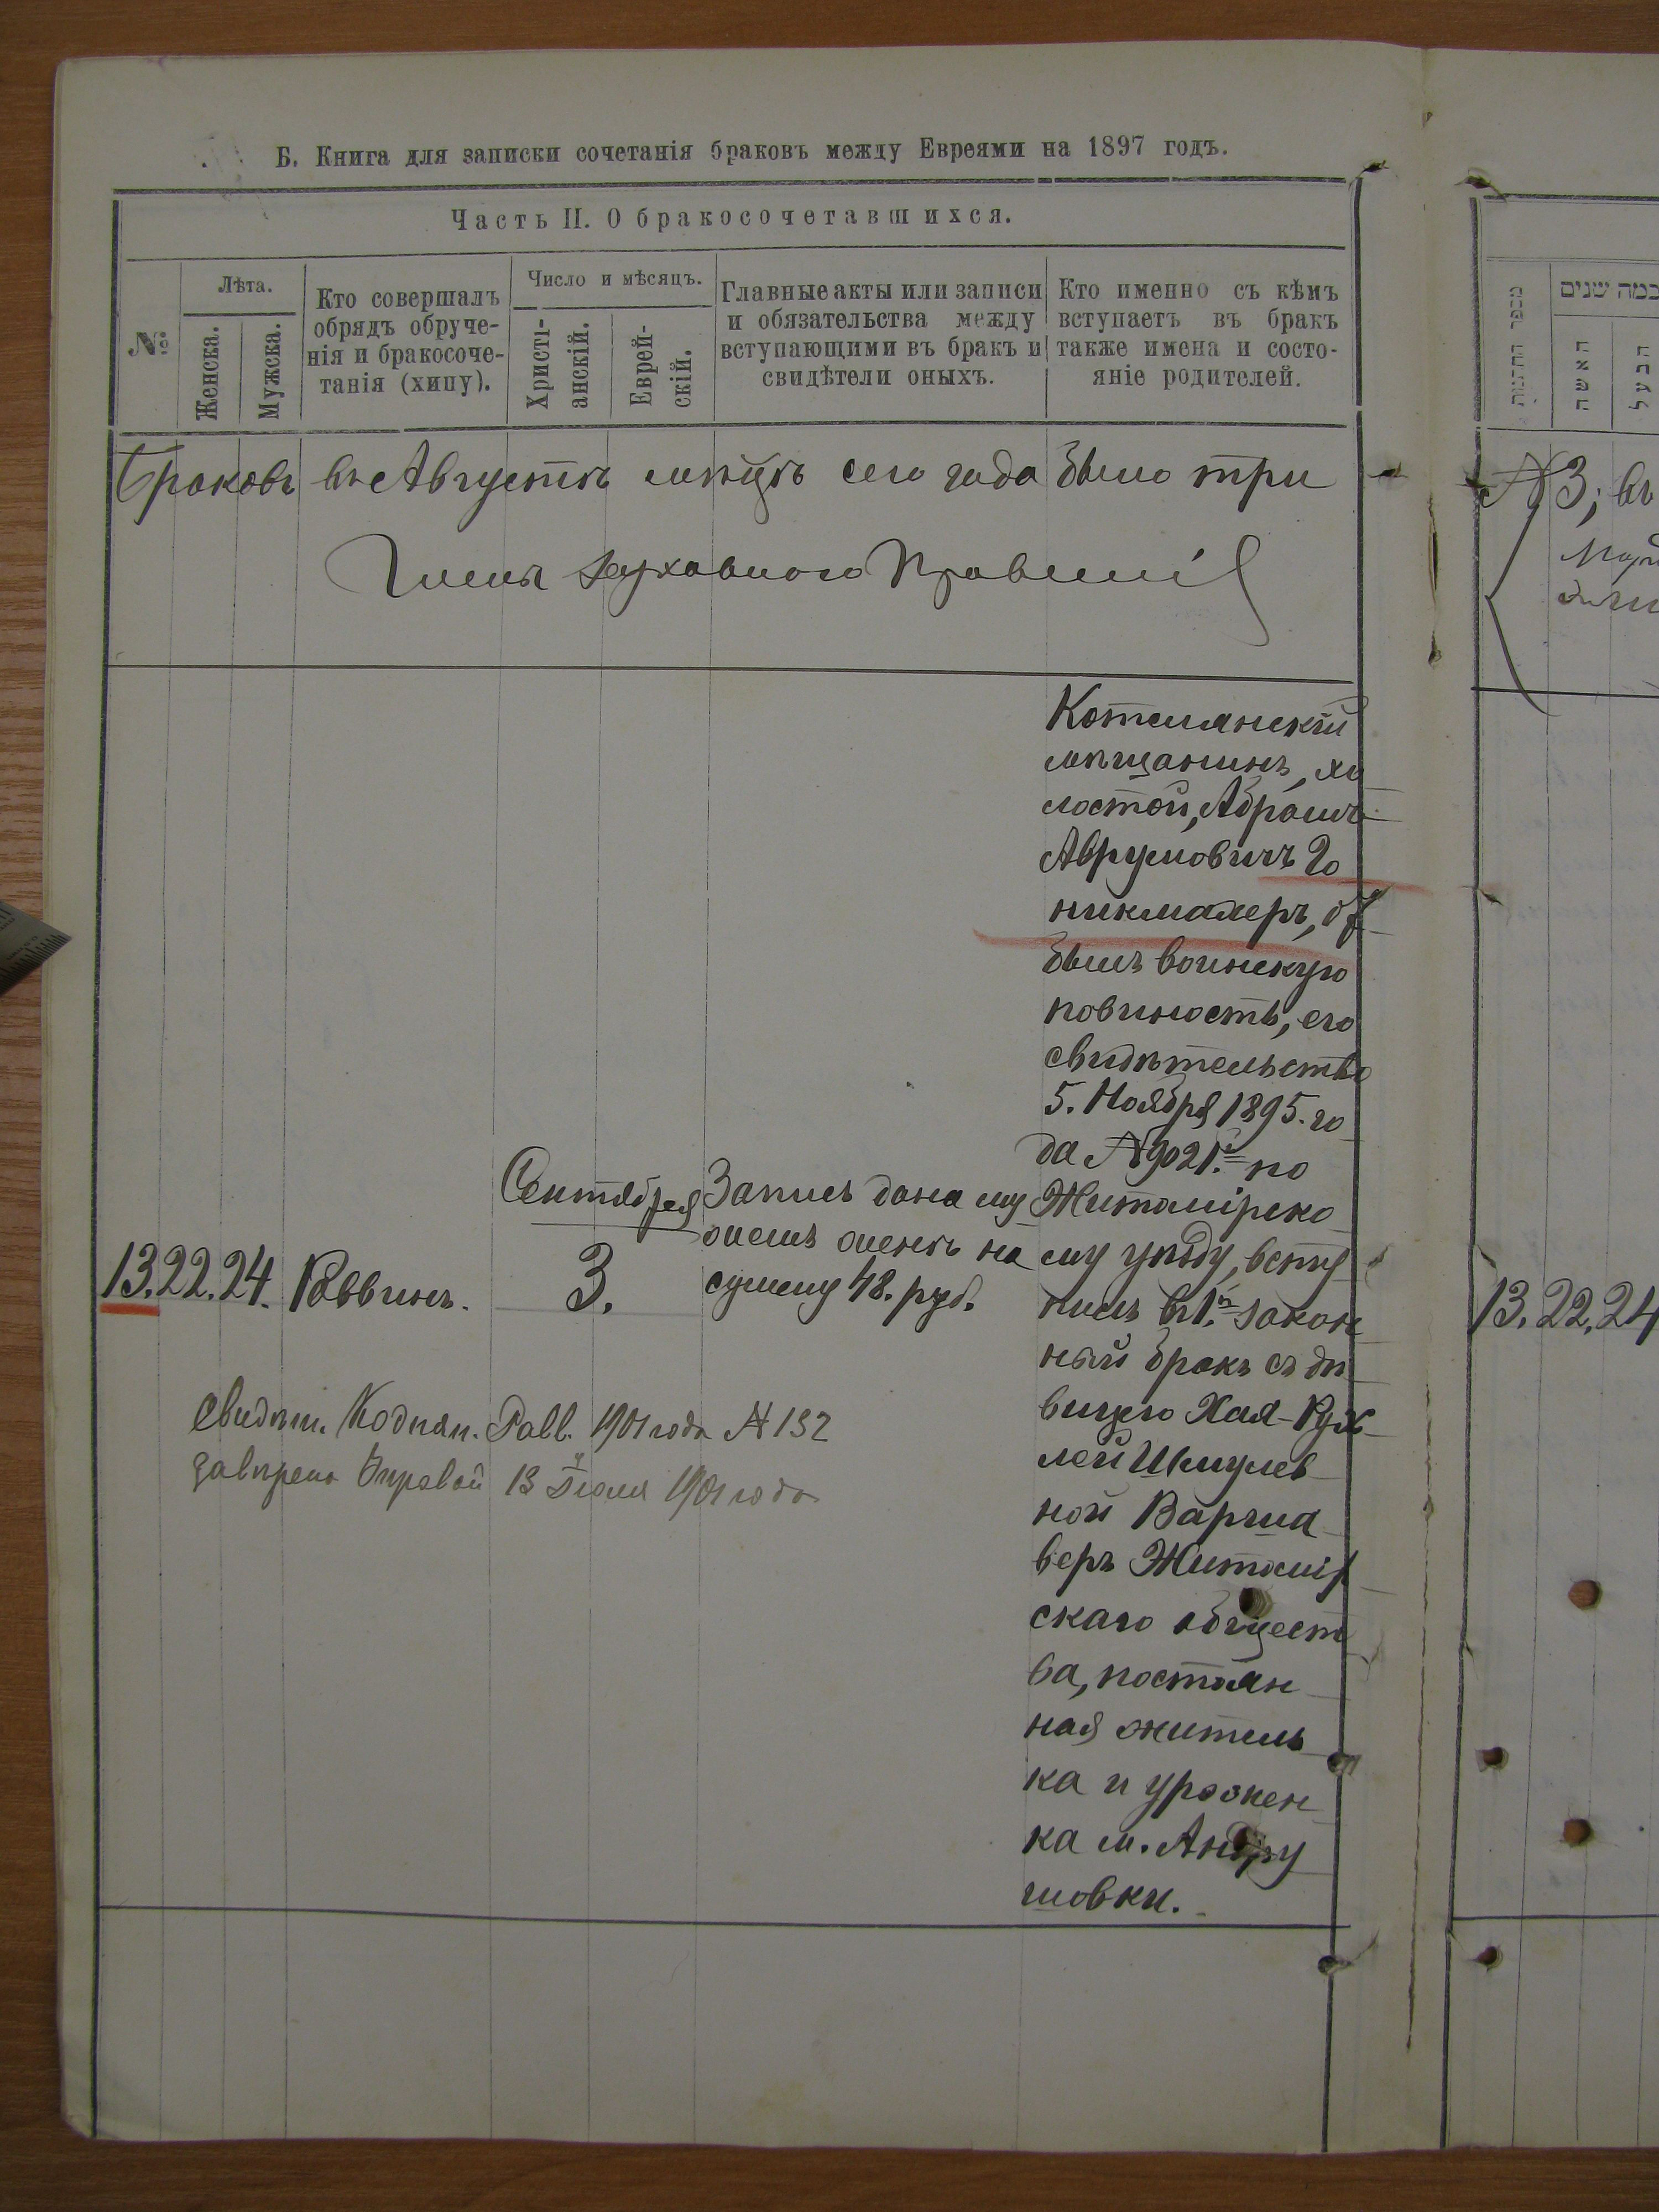 Б. Книга для записки сочетанія браковъ между Евреями на 1897 годъ.
Часть II. О бракосочетавшихся.
№
Лѣта.
Женска.
Мужска.
Кто совершалъ
обрядъ обруче-
нія и бракосоче-
танія (хипу).
Число и мѣсяцъ.
Христі-
анскій.
Еврей-
скій.
Главные акты или записи
и обязательства между
вступающими въ бракъ и
свидѣтели оныхъ.
Кто именно съ кѣмъ
вступаетъ въ бракъ
также имена и состо-
яніе родителей.
Браковъ въ Августѣ мѣсяцѣ сего года было три
Члены Духовного Правленія
13. 22. 24. Раввинъ.
Сентября
3.
Запись дана му
жемъ женѣ на
сумму 48. руб.
мѣщанинъ, хо
лостой, Абрамъ
Аврумовичъ Го
никмахеръ, от
былъ воинскую
повиность, его
свидѣтельство
5. Ноября 1895. го
да № 9021. по
Житомірско
му уѣзду, всту
пилъ въ 1.й закон
ный бракъ съ дѣ
вицею Хая-Рух
лей Шмулев
ной Варша
веръ Житомір
скаго общест
ва, постоян
ная житель
ка и урожен
ка м. Андру
шовки.
Свидѣт. Равв. 1901 года № 132
13 Іюля 1901 года
מספר החתונות
כמה שנים
האשה
הבעל
№ 3, въ
13. 22. 24